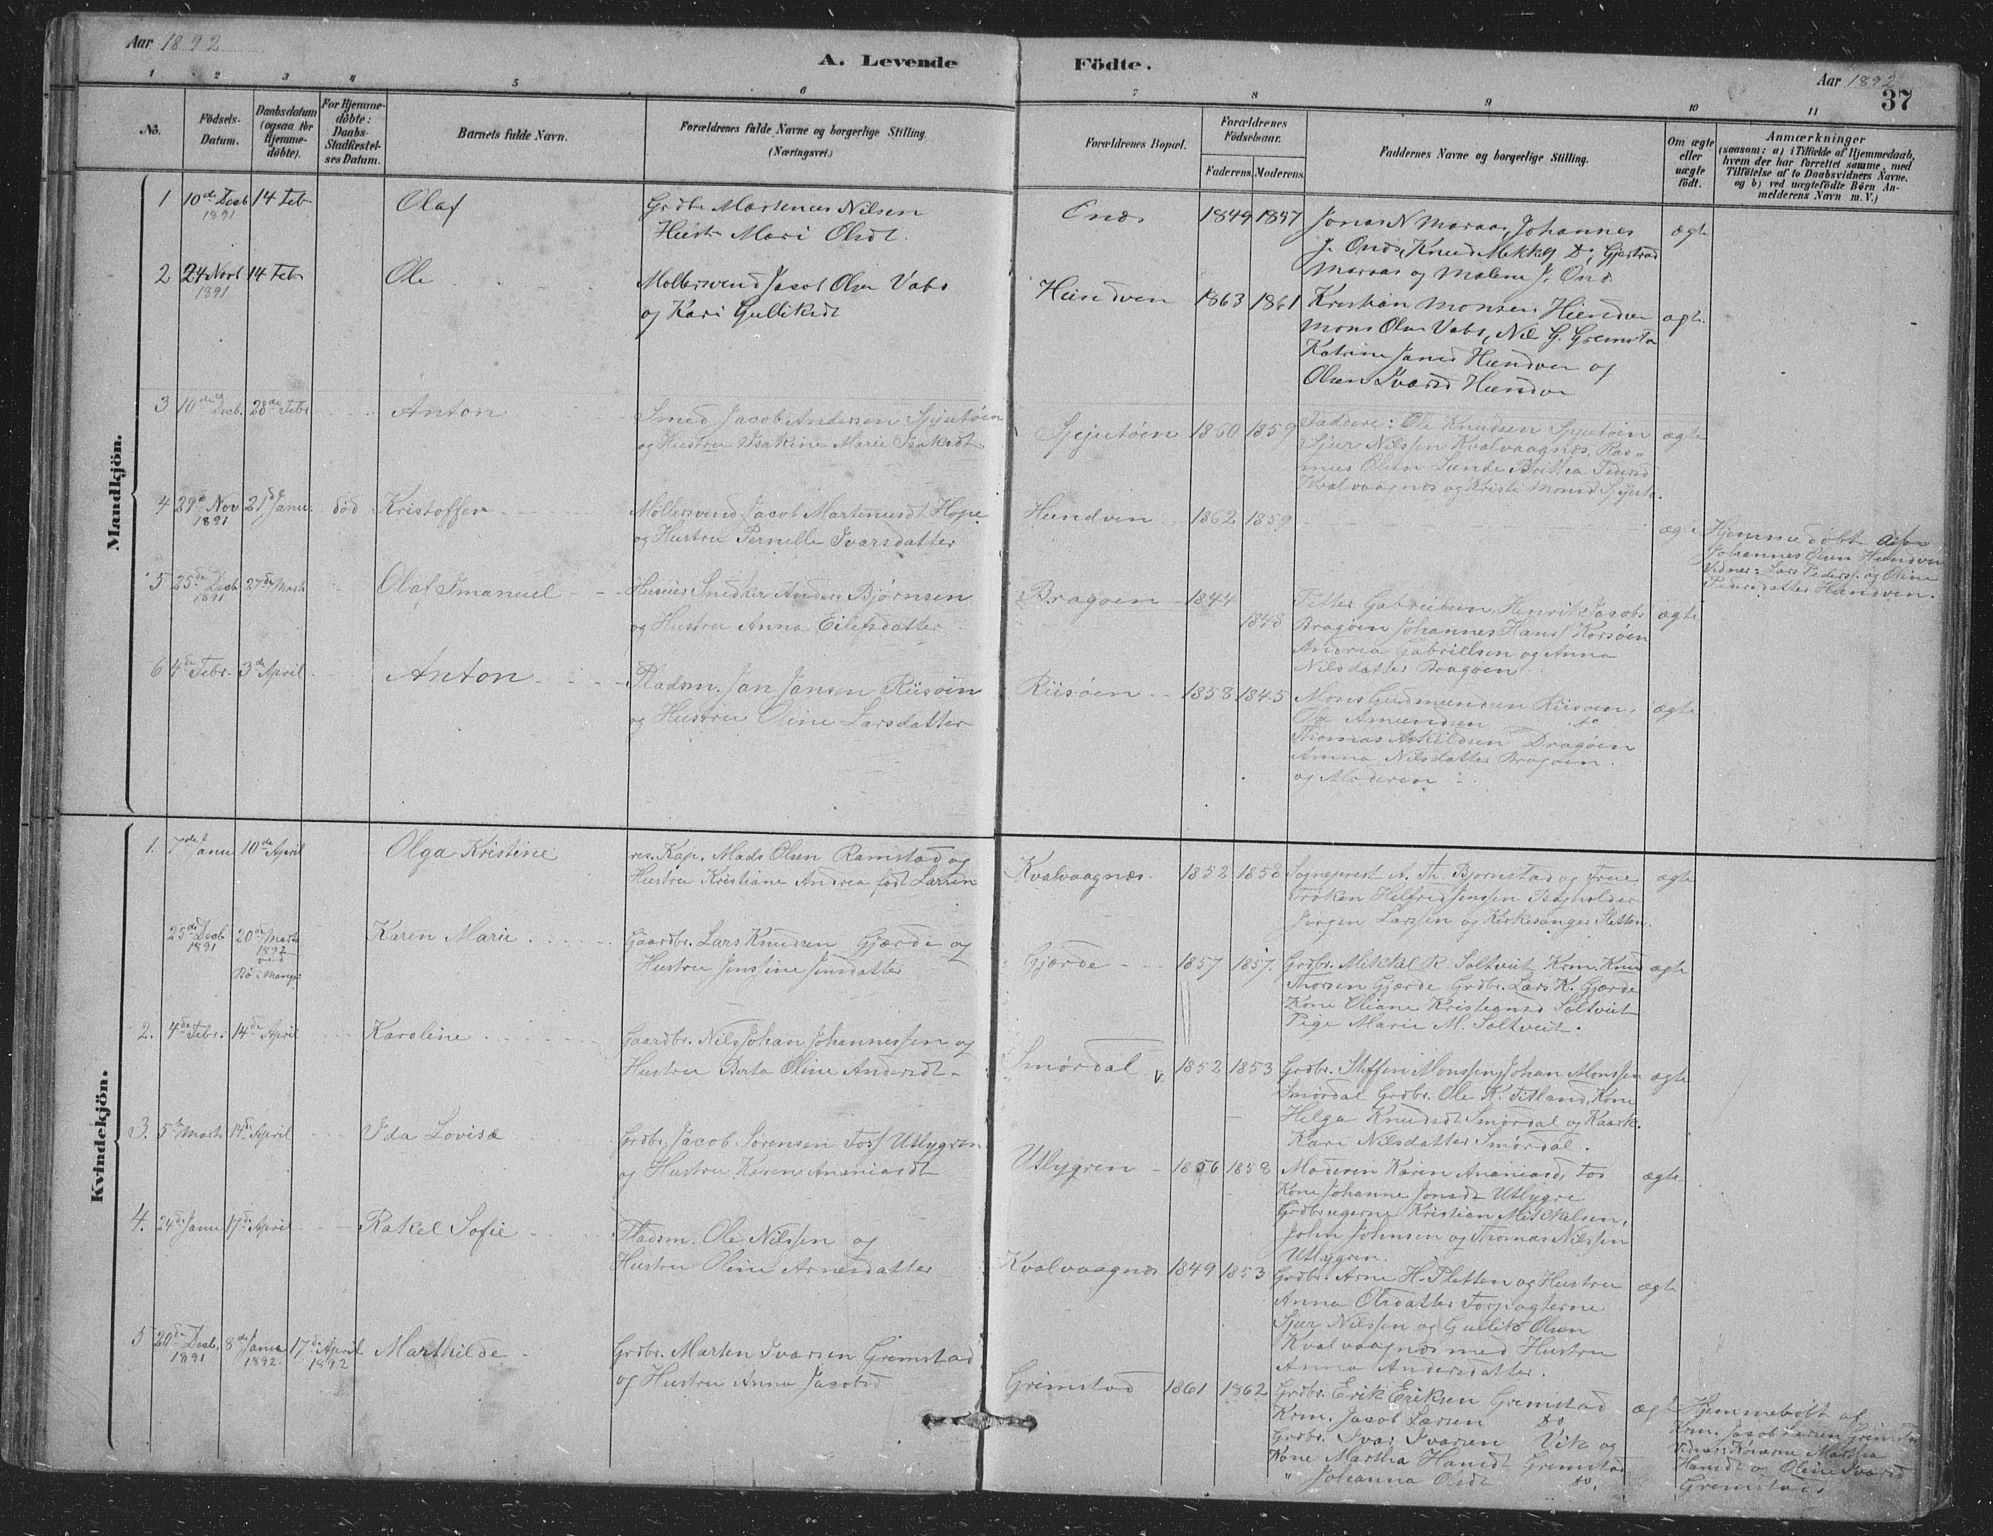 Aar 1892
A. Levende Födte.
Aar 1892
37
1 2 3 4 5 6 7 8 9 10 11
No.
Födsels-Datum.
Daabsdatum (ogsaa for Hjemme-döbte).
For Hjemme-döbte: Daabs-Stadfæstel-ses Datum.
Barnets fulde Navn.
Forældrenes fulde Navne og borgerlige Stilling.
(Næringsvei.)
Forældrenes Bopæl.
Forældrenes Födselsaar.
Faderens. Moderens.
Faddernes Navne og borgerlige Stilling.
Om ægte eller uægte födt.
Anmærkninger
(saasom: a) i Tilfælde af Hjemmedaab,
hvem der har forrettet samme, med
Tilföielse af to Daabsvidners Navne,
og b) ved uægtefödte Börn An-
melderens Navn m. V.)
Mandkjön.
1 10de Decb 1891 14 Feb Olaf
Grdbr Martenus Nilsen
Hustr Mari Olsdt.
Onds 1849 1857
Jonas N Maraas, Johannes
J. Onds, Knud Mekkelsen Do, Gjertrud
Maraas og Malene J. Onds
ægte
2 24 Novb 1891 14 Feb Ole
Møllersvend Jacob Olsen Vabø
og Kari Gulliksdt
Hundven 1863 1861
Kristian Monsen Hundven
Mons Olsen Vabø, Nils G. Gremstad
Katrine Jansd Hundven og
Olsen Ivarsd Hundven
ægte
3 10de Decb. 28de Febr Anton
Smed Jacob Andersen Spjutøen
og Hustru Isakine Marie Isaksdt
Spjutøen 1860 1859
Faddere: Ole Knudsen Spjutøen
Sjur Nilssen Kvalvaagnæs, Ras-
mus Olsen Lunde Brithta Pedersd
Kvalvaagnæs og Kristi Monsd Spjutø.
ægte
4 29de Nov 1891 21de Janu. død Kristoffer
Møllersvend Jacob Martinusdt Hope
og Hustru Pernille Ivarsdatter
Hundven 1862 1859
ægte
Hjemmedøbt af
Johannes Olsen Hundven
Vidner: Lars Peders. og Oline
Pedersdatter Hundven.
5 25de Decb 1891 27de Marts Olaf Emanuel
Husmd Snedker Anders Bjørnsen
og Hustru Anna Eilefsdatter
Dragøen 1844 1848
Petter Gabrielsen, Henrik Jacobs
Dragøen Johannes Hans. Korsøen
Andrea Gabrielsen og Anna
Nilsdatter Dragøen.
ægte
6 4de Febr. 3de April Anton
Pladsm. Jan Jansen Riisøen
og Hustru Oline Larsdatter
Riisøen 1858 1845
Mons Gudmundsen Riisøen,
Ole Amundsen do
Thomas Askildsen Dragøen
Anna Nilsdatter Dragøen.
og Moderen
ægte
Kvindekjön.
1. 7de Janu 10de April Olga Kristine
res. Kap. Mads Olsen Ramstad og
Hustru Kristiane Andrea født Larsen
Kvalvaagnæs. 1852 1858
Sogneprest A. Th. Bjørnstad og Frue
Frøken Helfrid Jenssen
Jørgen Larssen og Kirkesanger Sletten.
ægte
23de Decb 1891 20de Marts 1892 ved Bø i Manger Karen Marie
Gaardbr. Lars Knudsen Gjærde og
Hustru Jenstine Jensdatter
Gjærde 1857 1857.
Grdbr. Mikkal R. Soltveit Krm. Knud
Thorsen Gjærde Grdbr. Lars K. Gjærde
Kone Oliane Kristegnsd Soltveit
Pige Marie M. Soltveit.
ægte
2. 4de Febr. 14de April Karoline
Gaardbr. Nils Johan Johannessen og
Hustru Berta Oline Andersdt
Smørdal 1852 1853
Grdbr. Steffen Monssen Johan Monssen
Smørdal Grdbr. Ole K. Fitland, Kone
Helga Knudsdt Smørdal og Kaark.
Kari Nilsdatter Smørdal.
ægte
3. 5te Marts 14de April Ida Lovise
Grdbr. Jacob Sørensen Fosf Utlygren
og Hustru Karen Ananiasdt
Utlygren 1856 1858
Moderen Karen Ananiasd, Fos
Kone Johanne Jonsdt Utlygre
Grdbrugerne Kristian Mikkelsen,
John Johnsen og Thomas Nilssen
Utlygren.
ægte
4. 24de Janu 17de April Rakel Sofie
Pladsm. Ole Nilssen og
Hustru Oline Arnesdatter
Kvalvaagnæs 1849 1853
Grdbr. Arne H. Sletten og Hustru
Anna Olsdatter Forpagterne
Sjur Nilssen og Gullik Olsen
Kvalvaagnæs med Hustru
Anna Andersdatter.
ægte
5 20de Decb. 1891 8de Janu 1892. 17de April 1892 Marthilde
Grdbr. Marten Ivarsen Gremstad
og Hustru Anna Jacobsd
Grimstad 1861 1862
Grdbr. Erik Eriksen Gremstad
Krm. Jacob Larsen Do
Grdbr. Ivar Ivarsen Vik og
Kone Martha Hansdt Gremstad
" Johanna Olsdt do.
ægt
Hjemmedøbt af
Krm. Jacob Larsen Grimstad
Vidner: Konerne Martha
Hansdt og Oline Ivarsd
Gremstad